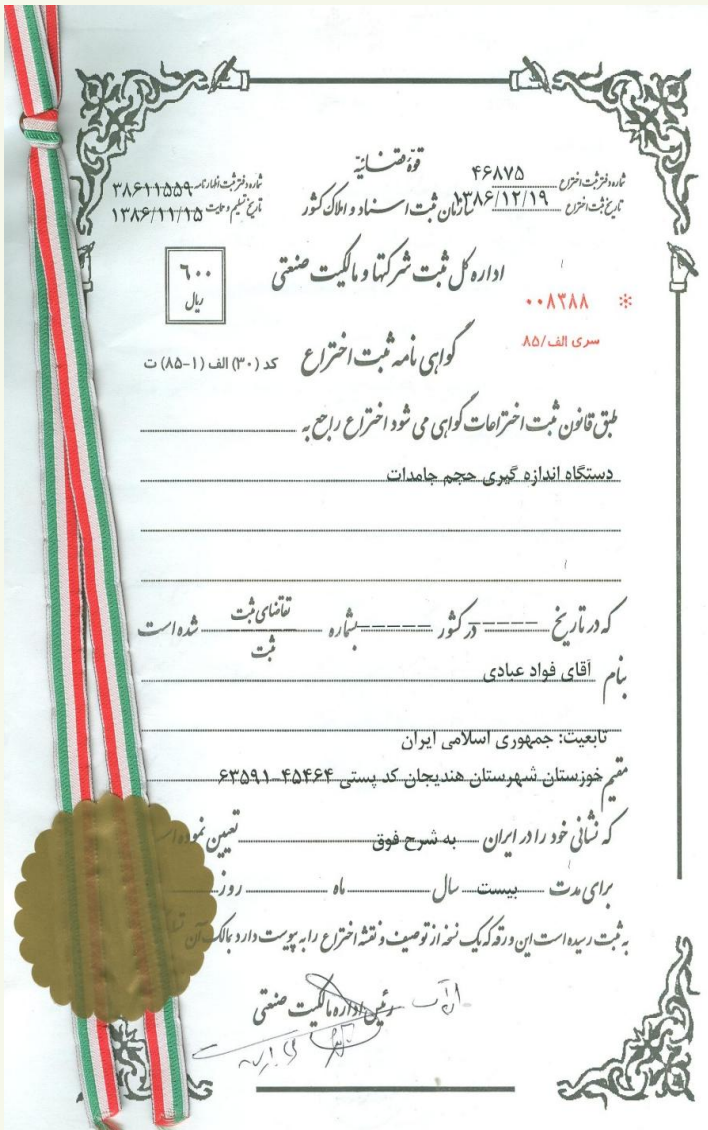 قوّه قضائیّه
شماره دفتر ثبت اختراع ۴۶۸۷۵
شماره دفتر ثبت اظهارنامه ۳۸۶۱۱۵۵۹
تاریخ ثبت اختراع ۱۳۸۶/۱۲/۱۹
سازمان ثبت اسناد و املاک کشور
تاریخ تسلیم و حمایت ۱۳۸۶/۱۱/۱۵
اداره کل ثبت شرکتها و مالکیت صنعتی
۶۰۰
ریال
* ۰۰۸۳۸۸
سری الف/۸۵
گواهی نامه ثبت اختراع
کد (۳۰) الف (۱-۸۵) ت
طبق قانون ثبت اختراعات گواهی می شود اختراع راجع به
دستگاه اندازه گیری حجم جامدات
که در تاریخ ----- در کشور ----- بشماره تقاضای ثبت / ثبت شده است
بنام آقای فواد عبادی
تابعیت: جمهوری اسلامی ایران
مقیم خوزستان شهرستان هندیجان کد پستی ۴۵۴۶۴-۶۳۵۹۱
که نشانی خود را در ایران به شرح فوق تعیین نموده
برای مدت بیست سال ماه روز
به ثبت رسیده است این ورقه که یک نسخه از توصیف و نقشه اختراع را به پیوست دارد بمالک آن
رئیس اداره مالکیت صنعتی